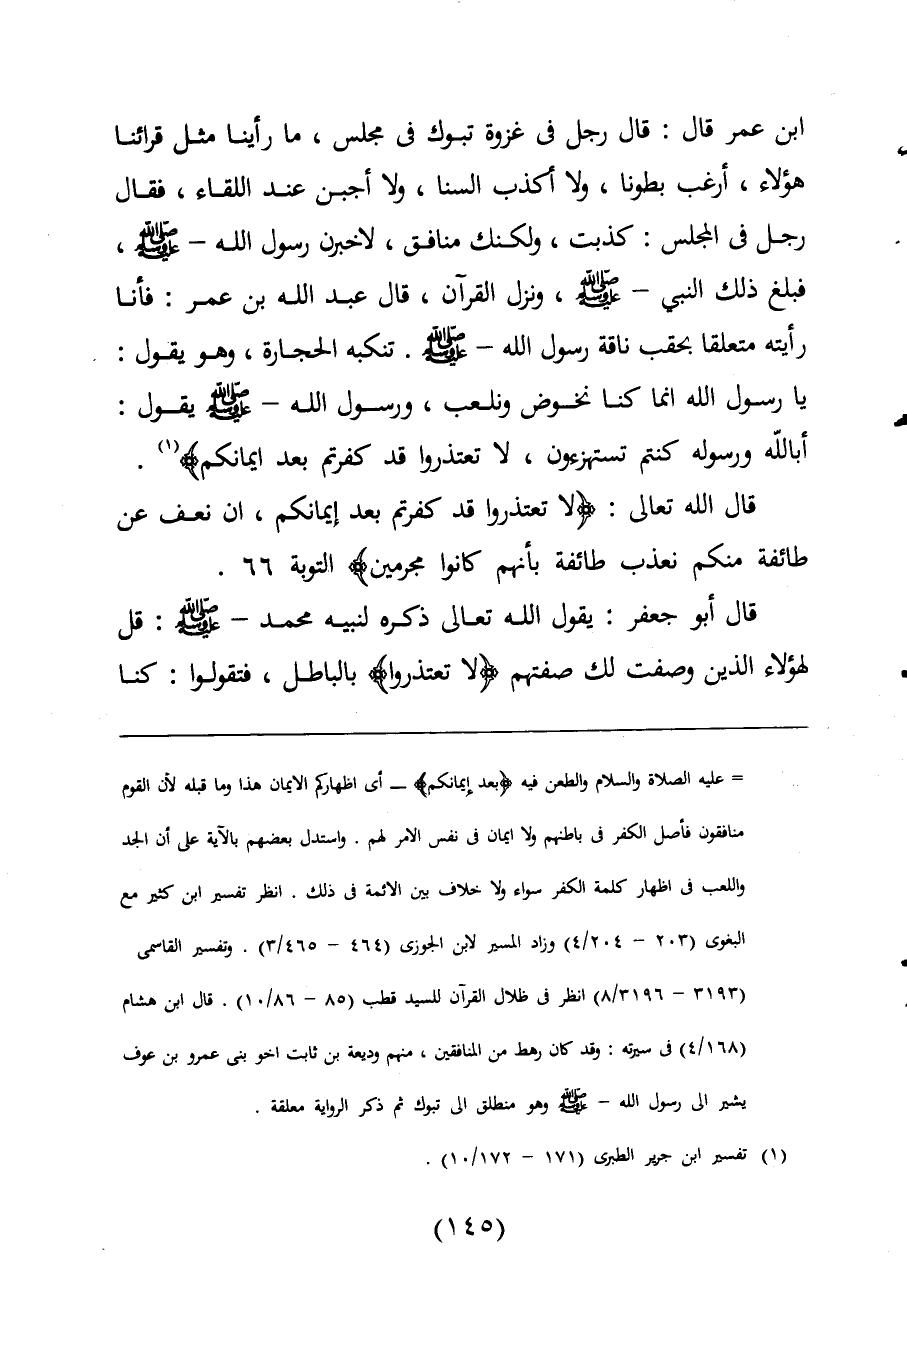 ابن عمر قال : قال رجل فى غزوة تبوك فى مجلس ، ما رأينا مثل قرائنا
هؤلاء ، أرغب بطونا ، ولا أكذب السنا ، ولا أجبن عند اللقاء ، فقال
رجل فى المجلس : كذبت ، ولكنك منافق ، لاخبرن رسول الله – ﷺ ،
فبلغ ذلك النبي – ﷺ ، ونزل القرآن ، قال عبد الله بن عمر : فأنا
رأيته متعلقا بحقب ناقة رسول الله – ﷺ . تنكبه الحجارة ، وهو يقول :
يا رسول الله انما كنا نخوض ونلعب ، ورسول الله – ﷺ يقول :
أبالله ورسوله كنتم تستهزءون ، لا تعتذروا قد كفرتم بعد ايمانكم﴾(١) .
قال الله تعالى : ﴿لا تعتذروا قد كفرتم بعد إيمانكم ، ان نعف عن
طائفة منكم نعذب طائفة بأنهم كانوا مجرمين﴾ التوبة ٦٦ .
قال أبو جعفر : يقول الله تعالى ذكره لنبيه محمد – ﷺ : قل
لهؤلاء الذين وصفت لك صفتهم ﴿لا تعتذروا﴾ بالباطل ، فتقولوا : كنا
= عليه الصلاة والسلام والطعن فيه ﴿بعد إيمانكم﴾ – أى اظهاركم الايمان هذا وما قبله لأن القوم
منافقون فأصل الكفر فى باطنهم ولا ايمان فى نفس الامر لهم . واستدل بعضهم بالآية على أن الجد
واللعب فى اظهار كلمة الكفر سواء ولا خلاف بين الائمة فى ذلك . انظر تفسير ابن كثير مع
البغوى (٢٠٣ – ٤/٢٠٤) وزاد المسير لابن الجوزى (٤٦٤ – ٣/٤٦٥) . وتفسير القاسمى
(٣١٩٣ – ٨/٣١٩٦) انظر فى ظلال القرآن للسيد قطب (٨٥ – ١٠/٨٦) . قال ابن هشام
(٤/١٦٨) فى سيرته : وقد كان رهط من المنافقين ، منهم وديعة بن ثابت اخو بنى عمرو بن عوف
يشير الى رسول الله – ﷺ وهو منطلق الى تبوك ثم ذكر الرواية معلقة .
(١) تفسير ابن جرير الطبرى (١٧١ – ١٠/١٧٢) .
(١٤٥)